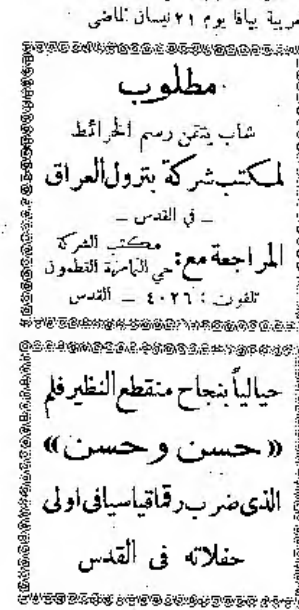 بيافا يوم ٢١ نيسان الماضي
مطلوب
شاب يتقن رسم الخرائط
لمكتب شركة بترول العراق
_ في القدس _
المراجعة مع: مكتب الشركة
حي النامرية القطمون
تلفون : ٤٠٢٦ _ القدس
حالياً بنجاح منقطع النظير فلم
«حسن وحسن»
الذى ضرب رقما قياسيا فى اولى
حفلاته فى القدس